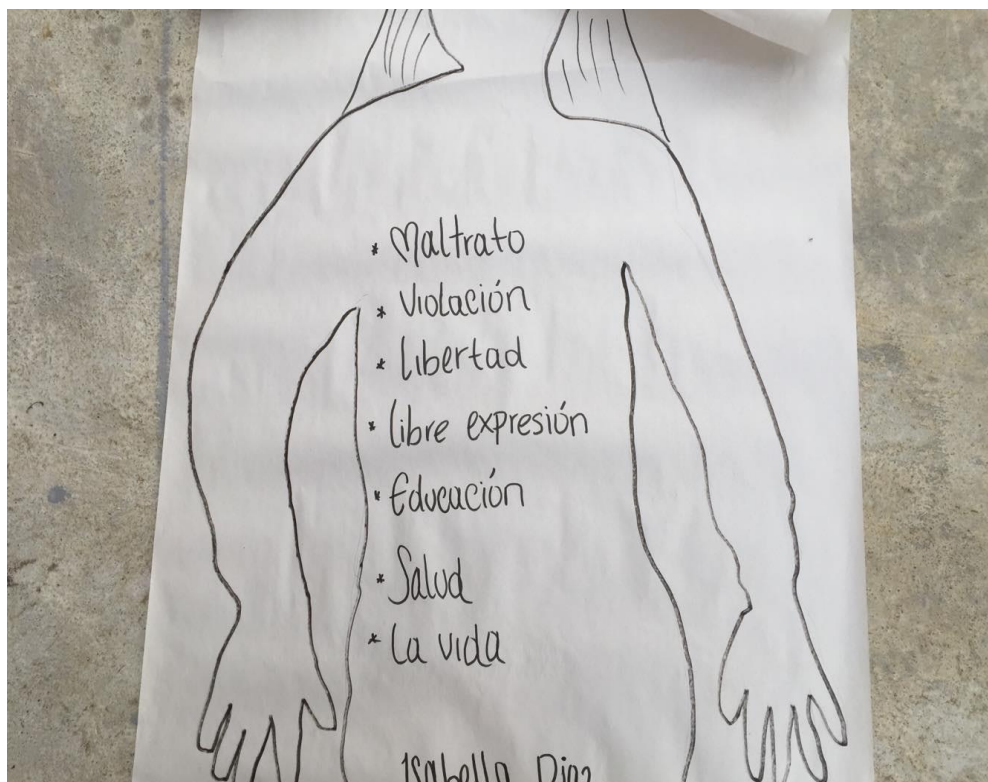 * Maltrato
* Violación
* libertad
* libre expresión
* Educación
* Salud
* La vida
Isabella Diaz